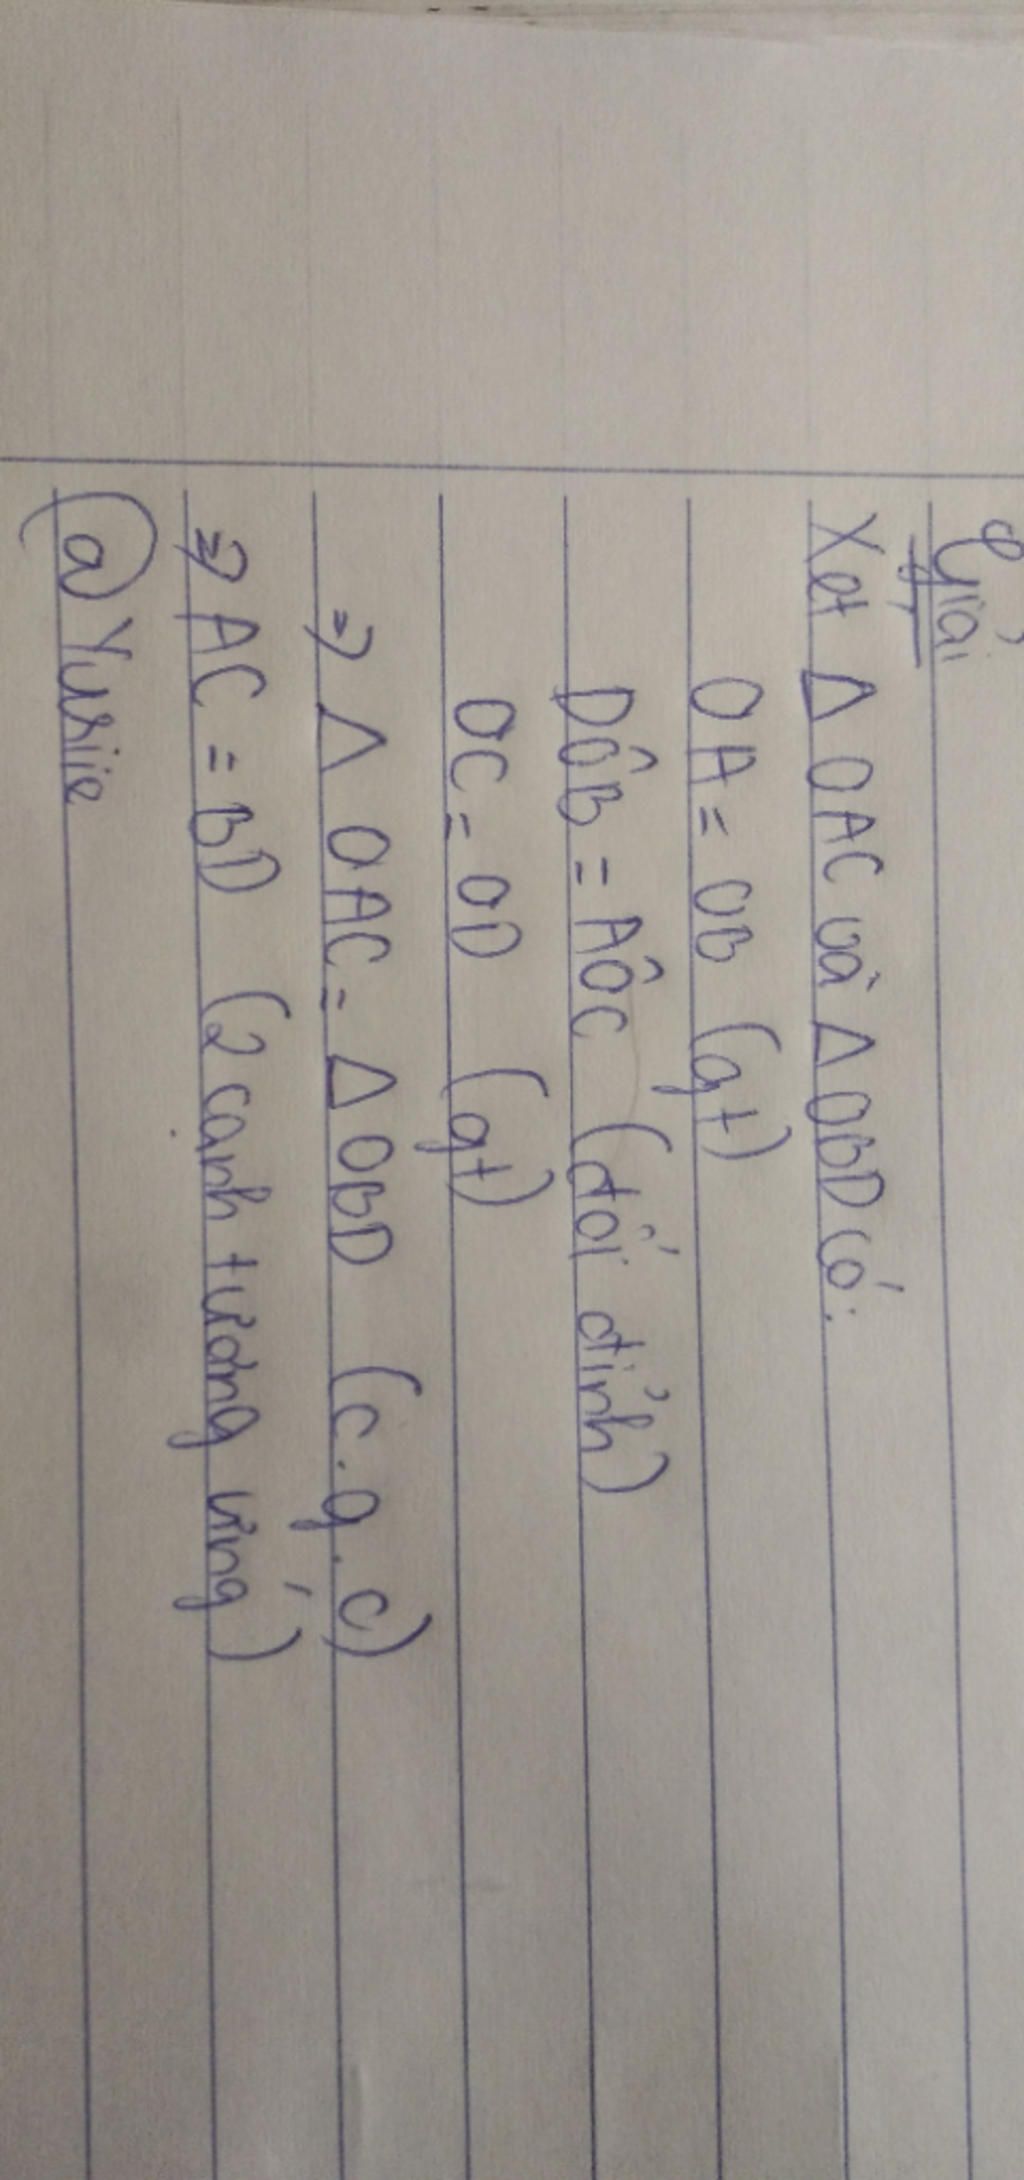 Giải
Xét Δ OAC và Δ OBD có:
OA = OB (gt)
DÔB = AÔC (đối đỉnh)
OC = OD (gt)
=> Δ OAC = Δ OBD (c.g.c)
=> AC = BD (2 cạnh tương ứng)
@Yuriie